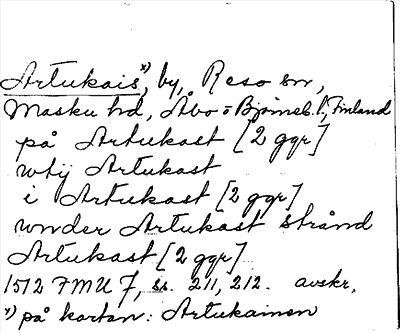 Artukais x), by, Reso sn,
Masku hd, Åbo-Björneb. l., Finland
på Artukast [2 ggr]
wtij Artukast
i Artukast [2 ggr]
wnder Artukast strånd
Artukast [2 ggr]
1512 FMU 7, ss. 211, 212. avskr.
x) på kartan: Artukainen